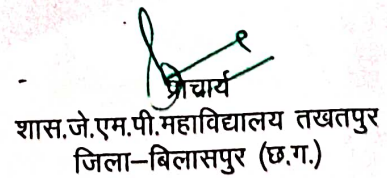 प्राचार्य
शास.जे.एम.पी.महाविद्यालय तखतपुर
जिला–बिलासपुर (छ.ग.)